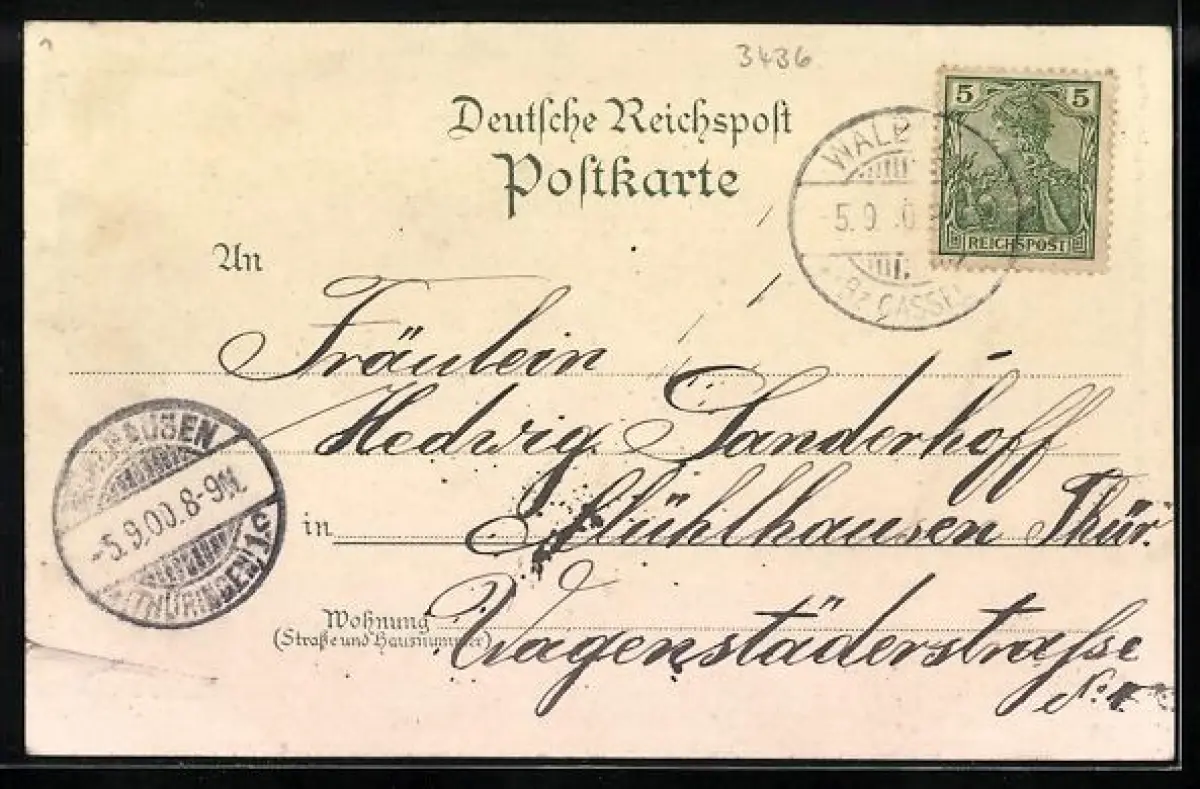 3436
Deutsche Reichspost
Postkarte
5 5
REICHSPOST
WALB
5.9.0
Bz CASSEL
An
Fräulein
Hedwig Sanderhoff
in Mühlhausen Thür.
Wohnung
(Straße und Hausnummer)
Wagenstäderstrasse
No.
HAUSEN
-5.9.00.8-9N.
(THÜRINGEN) 1c